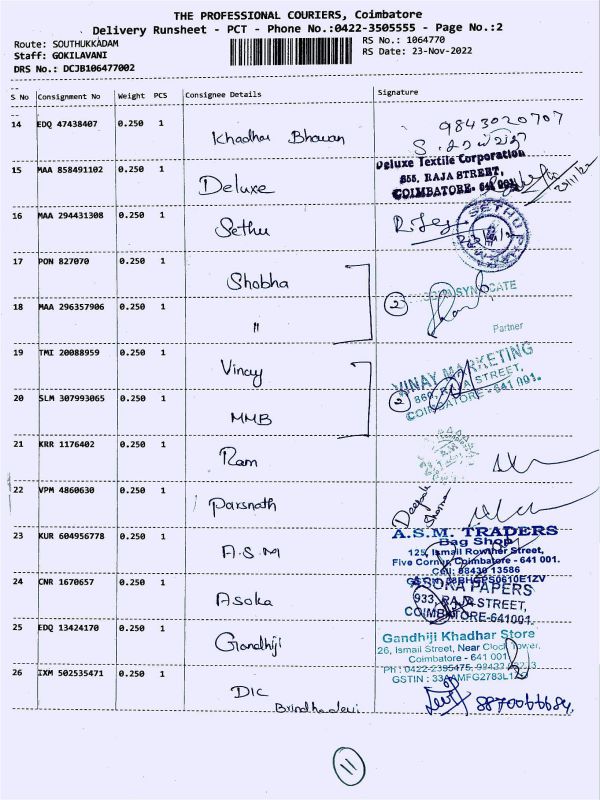 THE PROFESSIONAL COURIERS, Coimbatore
Delivery Runsheet - PCT - Phone No.:0422-3505555 - Page No.:2
Route: SOUTHUKKADAM
RS No.: 1064770
Staff: GOKILAVANI
RS Date: 23-Nov-2022
DRS No.: DCJB106477002
S No Consignment No Weight PCS Consignee Details Signature
14 EDQ 47438407 0.250 1 Khadhar Bhavan 9843020707
15 MAA 858491102 0.250 1 Deluxe
Deluxe Textile Corporation
855, RAJA STREET,
COIMBATORE- 641 001
23/11/22
16 MAA 294431308 0.250 1 Sethu
17 PON 827070 0.250 1 Shobha
18 MAA 296357906 0.250 1 "
2
SYNDICATE
Partner
19 TMI 20088959 0.250 1 Vinay
20 SLM 307993065 0.250 1 MMB
2
VINAY MARKETING
860, RAJA STREET,
COIMBATORE - 641 001.
21 KRR 1176402 0.250 1 Ram
22 VPM 4860630 0.250 1 Parsnath
Deepak
Sharma
23 KUR 604956778 0.250 1 A.S.M
A.S.M. TRADERS
Bag Shop
125, Ismail Rowther Street,
Five Corner, Coimbatore - 641 001.
Cell: 98430 13586
24 CNR 1670657 0.250 1 Asoka
ASOKA PAPERS
933, RAJA STREET,
COIMBATORE-641001.
25 EDQ 13424170 0.250 1 Gandhiji
Gandhiji Khadhar Store
26, Ismail Street, Near Clock Tower,
Coimbatore - 641 001.
Ph : 0422-2395475,
GSTIN :
26 IXM 502535471 0.250 1 DIC
Brindhadevi
8870066684.
11